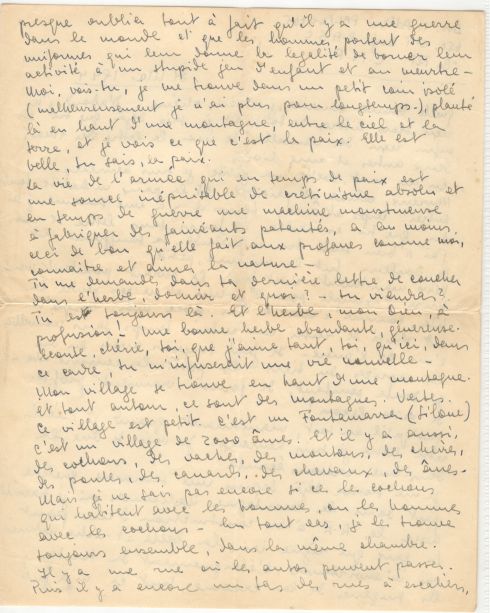 presque oublier tout à fait qu'il y a une guerre
dans le monde et que les hommes portent des
uniformes qui leur donne la légalité de borner leur
activité à un stupide jeu d'enfant et au meurtre –
Moi, vois-tu, je me trouve dans un petit coin isolé
(malheureusement je n'ai plus pour longtemps.), planté
là en haut d'une montagne, entre le ciel et la
terre, et je vois ce que c'est la paix. Elle est
belle, tu sais, la paix.
La vie de l'armée qui en temps de paix est
une source inépuisable de crétinisme absolu et
en temps de guerre une machine monstrueuse
à fabriquer des fainéants patentés, a au moins,
ceci de bon qu'elle fait aux profanes comme moi,
connaître et aimer la nature –
Tu me demandes dans ta dernière lettre de coucher
dans l'herbe, dormir et quoi? – tu viendras?
Tu est toujours là. Et l'herbe, mon Dieu, à
profusion! Une bonne herbe abondante, généreuse.
Ecoute, chérie, toi, que j'aime tant, toi, qu'ici, dans
ce cadre, tu m'insuflerait une vie nouvelle –
Mon village se trouve en haut d'une montagne.
Et tout autour, ce sont des montagnes. Vertes.
Ce village est petit. C'est un Fontamarra (Silone)
C'est un village de 2000 âmes. Et il y a aussi,
des cochons, des vaches, des moutons, des chèvres,
des poules, des canards, des chevaux, des ânes –
Mais je ne sais pas encore si ce les cochons
qui habitent avec les hommes, ou les hommes
avec les cochons – En tout cas, je les trouve
toujours ensemble, dans la même chambre.
Il y a une rue où les autos peuvent passer.
Puis il y a encore un tas des rues à escaliers,